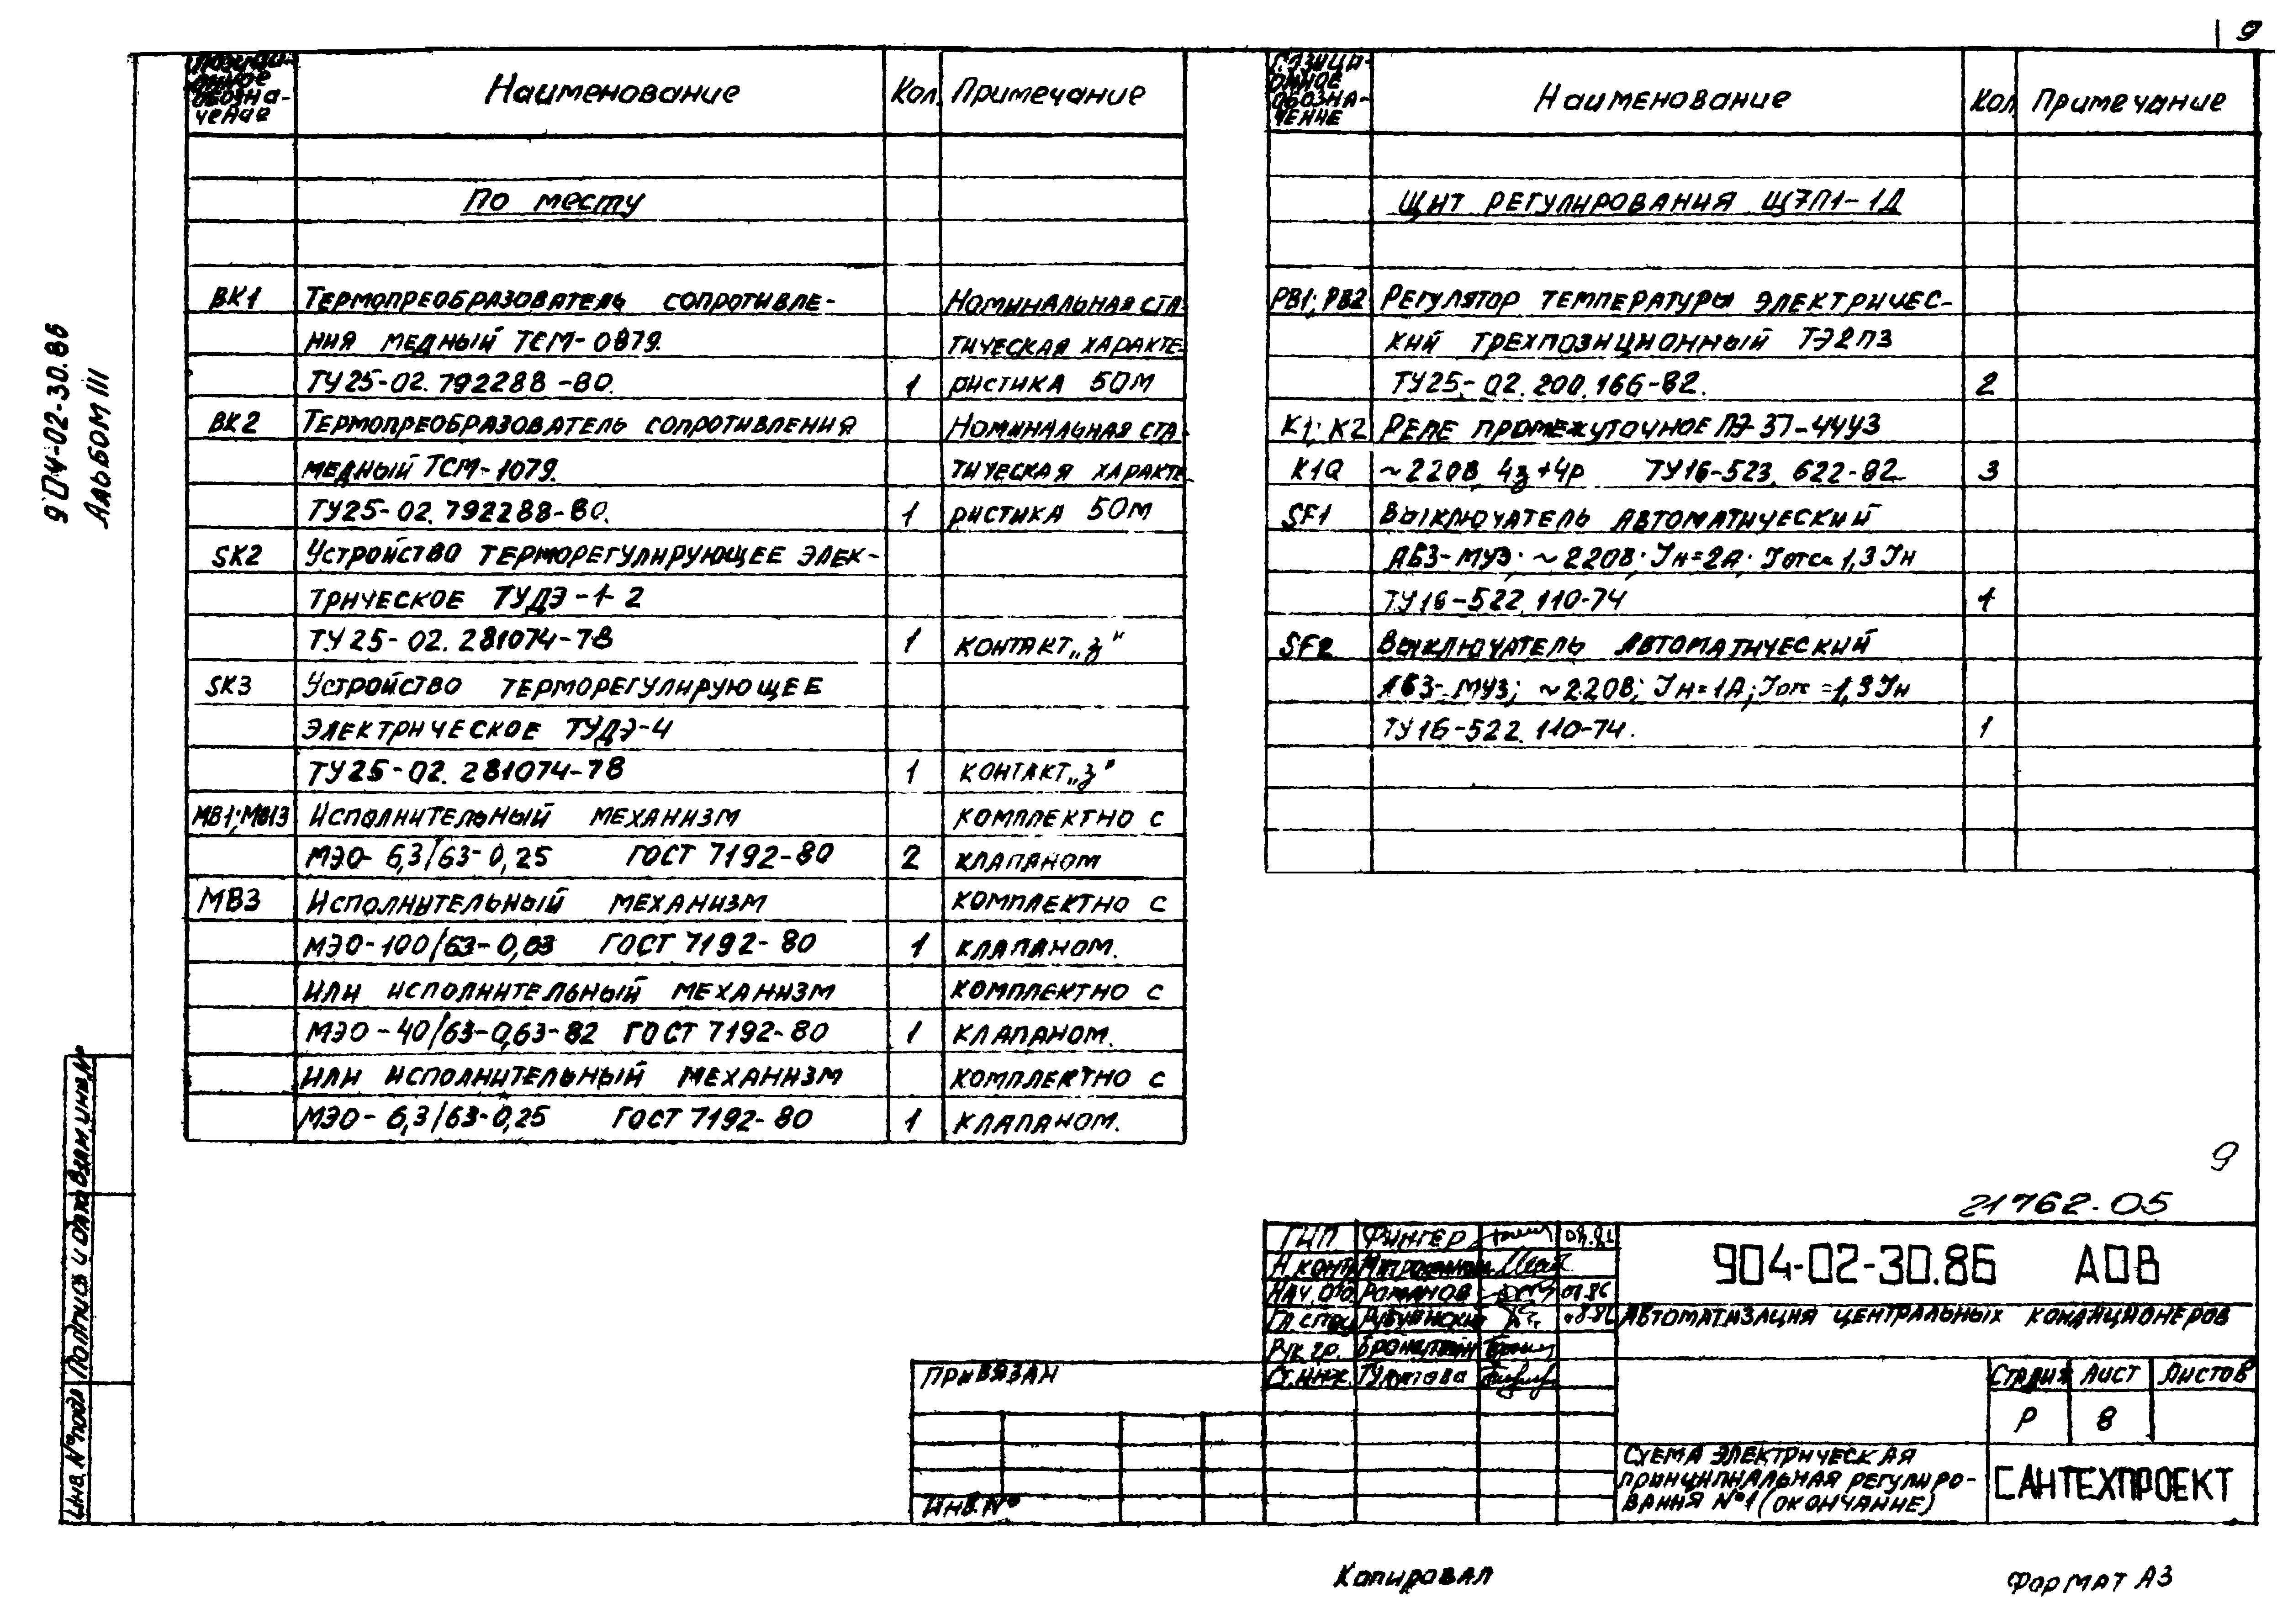 9
904-02-30.86
Альбом III
Позици-
онное
обозна-
чение
Наименование
Кол.
Примечание
По месту
ВК1 Термопреобразователь сопротивле- Номинальная ста-
ния медный ТСМ-0879. тическая характе-
ТУ25-02.792288-80. 1 ристика 50М
ВК2 Термопреобразователь сопротивления Номинальная ста-
медный ТСМ-1079. тическая характе-
ТУ25-02.792288-80. 1 ристика 50М
SK2 Устройство терморегулирующее элек-
трическое ТУДЭ-1-2
ТУ25-02.281074-78 1 контакт „з"
SK3 Устройство терморегулирующее
электрическое ТУДЭ-4
ТУ25-02.281074-78 1 контакт „з"
МВ1;МВ13 Исполнительный механизм комплектно с
МЭО-6,3/63-0,25 ГОСТ 7192-80 2 клапаном
МВ3 Исполнительный механизм комплектно с
МЭО-100/63-0,63 ГОСТ 7192-80 1 клапаном.
или исполнительный механизм комплектно с
МЭО-40/63-0,63-82 ГОСТ 7192-80 1 клапаном.
или исполнительный механизм комплектно с
МЭО-6,3/63-0,25 ГОСТ 7192-80 1 клапаном.
Позици-
онное
обозна-
чение
Наименование
Кол
Примечание
Щит регулирования Щ7П1-1Д
РВ1; РВ2 Регулятор температуры электричес-
кий трехпозиционный ТЭ2П3
ТУ25-02.200.166-82. 2
К1; К2 Реле промежуточное ПЭ-37-44У3
К1Q ~220В, 4з+4р ТУ16-523.622-82 3
SF1 Выключатель автоматический
АБ3-МУ3; ~220В; Iн=2А; Iотс=1,3 Iн
ТУ16-522.110-74 1
SF2 Выключатель автоматический
АБ3-МУ3; ~220В; Iн=1А; Iотс=1,3 Iн
ТУ16-522.110-74. 1
9
21762-05
ГИП Фингер
Н.конт.
Нач.отд. Романов 08.86
Гл.спец. Рубчинский 08.86
Рук.гр.
Ст.инж.
904-02-30.86 АОВ
Автоматизация центральных кондиционеров
Стадия Лист Листов
Р 8
Схема электрическая
принципиальная регулиро-
вания №1 (окончание)
САНТЕХПРОЕКТ
Привязан
Инв.№
Инв.№ подл
Подпись и дата
Взам.инв.№
Копировал
Формат А3